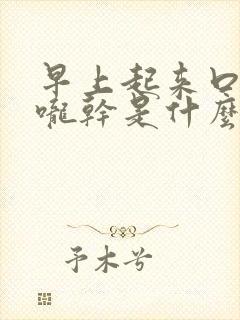 早上起来口
嚨幹是什麼
予木兮